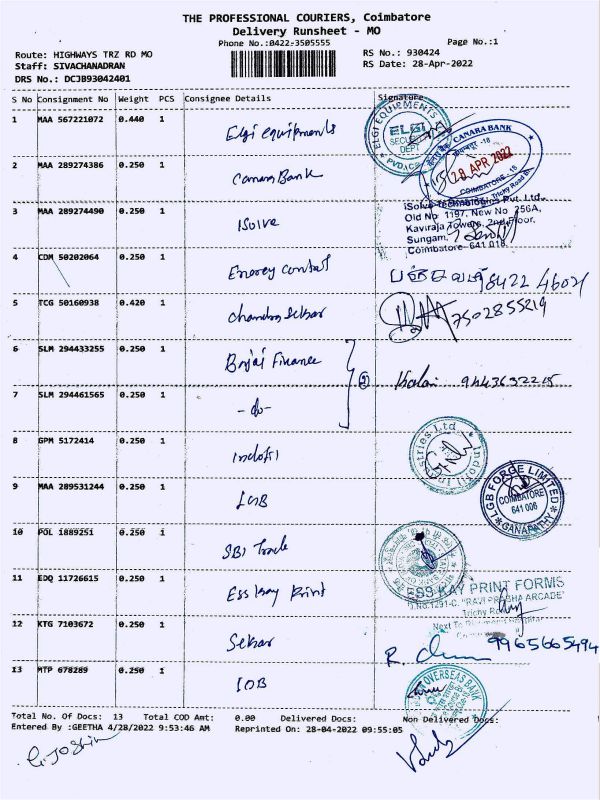 THE PROFESSIONAL COURIERS, Coimbatore
Delivery Runsheet - MO
Phone No.:0422-3505555
Page No.:1
Route: HIGHWAYS TRZ RD MO
RS No.: 930424
Staff: SIVACHANADRAN
RS Date: 28-Apr-2022
DRS No.: DCJB93042401
S No Consignment No Weight PCS Consignee Details Signature
1 MAA 567221072 0.440 1 Elgi equipments
ELGI EQUIPMENTS
ELGI
SECURITY
DEPT.
2 MAA 289274386 0.250 1 Canara Bank
CANARA BANK
28 APR 2022
COIMBATORE - 18
Trichy Road
3 MAA 289274490 0.250 1 iSolve
iSolve Technologies Pvt. Ltd.,
Old No 1197, New No 256A,
Kaviraja Towers, 2nd Floor,
Sungam,
Coimbatore 641 018.
4 CDM 50202064 0.250 1 Energy Control
98422 46021
5 TCG 50160938 0.420 1 Chandra Sekar
7502855219
6 SLM 294433255 0.250 1 Bajaj Finance
②
Kalai
7 SLM 294461565 0.250 1 - do -
8 GPM 5172414 0.250 1 Indofil
Indofil Industries Ltd
9 MAA 289531244 0.250 1 LGB
LGB FORGE LIMITED
COIMBATORE
641 006
GANAPATHY
10 POL 1889251 0.250 1 SBI Trade
11 EDQ 11726615 0.250 1 Ess kay Print
ESS KAY PRINT FORMS
D.No.1291-C, "RAVI PRABHA ARCADE"
Trichy Road
Next To
12 KTG 7103672 0.250 1 Sekar
9965665494
13 MTP 678289 0.250 1 IOB
OVERSEAS BANK
Total No. Of Docs: 13 Total COD Amt: 0.00 Delivered Docs: Non Delivered Docs:
Entered By :GEETHA 4/28/2022 9:53:46 AM Reprinted On: 28-04-2022 09:55:05